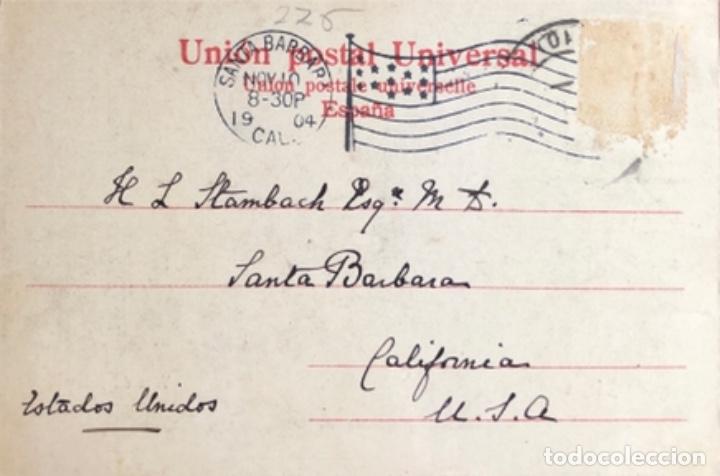 225
Unión postal Universal
Union postale universelle
España
SANTA BARBAR
NOV 10
8-30P
19 04
CAL.
10
H L Stambach Esqre M D.
Santa Barbara
California
Estados Unidos
U.S.A
todocoleccion